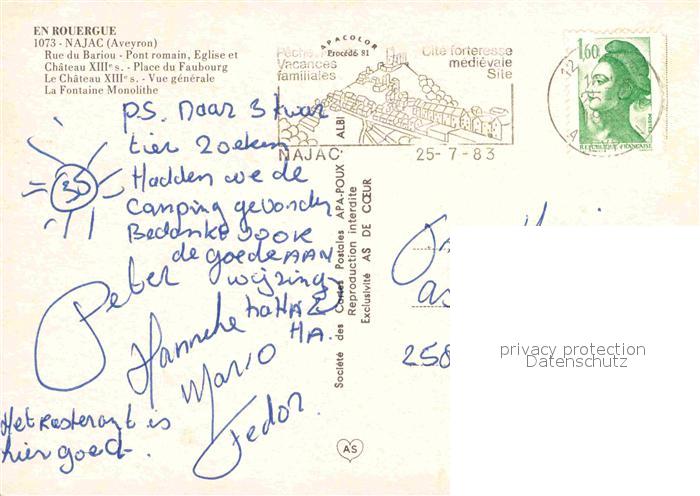 EN ROUERGUE
1073 - NAJAC (Aveyron)
Rue du Bariou - Pont romain, Eglise et
Château XIIIe s. - Place du Faubourg
Le Château XIIIe s. - Vue générale
La Fontaine Monolithe
APACOLOR
Procédé 81
Pêche
Vacances
familiales
Cité forteresse
médiévale
Site
NAJAC
25-7-83
12
1,60
POSTES
REPUBLIQUE FRANÇAISE
P.S. Naar 3 kwar
tier zoeken
Hadden we de
camping gevonden
Bedankt voor
de goede AAN
wijzing
ha HA
HA.
35
Peter
Hanneke
Mario
Fedor.
Het resterant is
hier goed.
Société des Cartes Postales APA-POUX - ALBI
Reproduction interdite
Exclusivité AS DE CŒUR
AS
258
privacy protection
Datenschutz